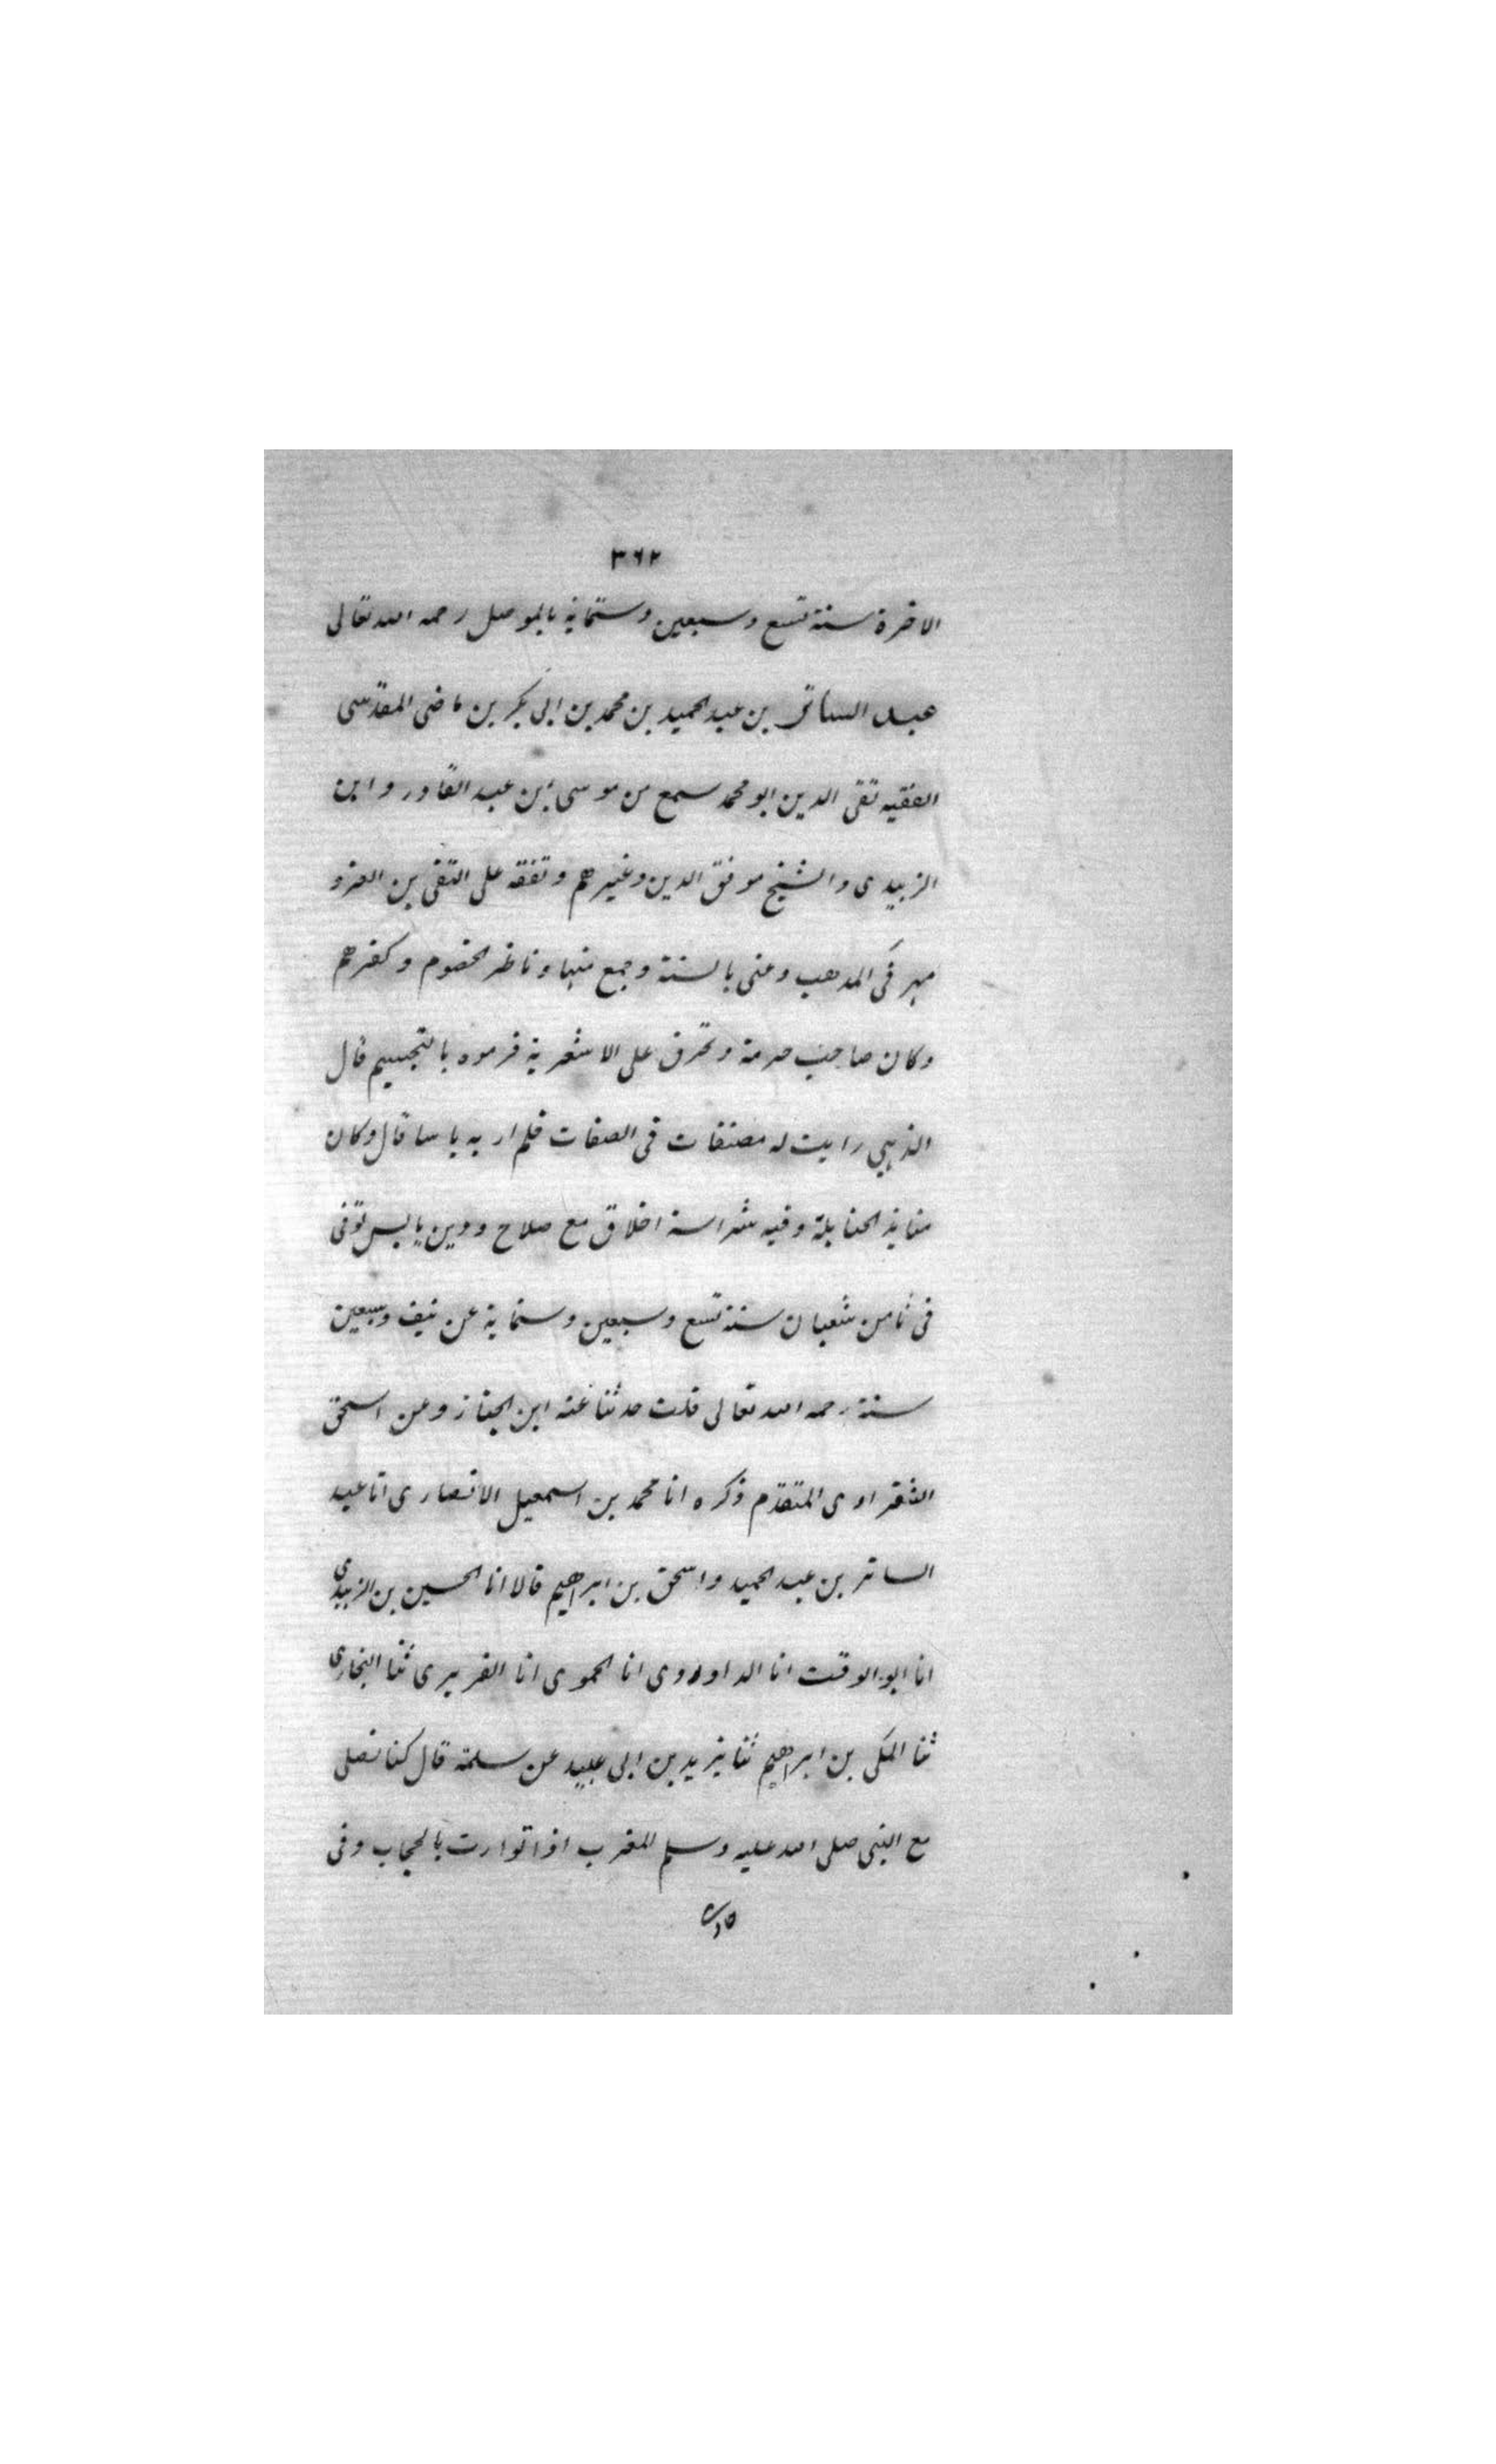 ٣٦٢
الاخرة سنة تسع وسبعين وستماية بالموصل رحمه الله تعالى
عبد الساتر بن عبد الحميد بن محمد بن ابى بكر بن ماضى المقدسى
الفقيه تقى الدين ابو محمد سمع من موسى بن عبد القادر وابن
الزبيدى والشيخ موفق الدين وغيرهم وتفقه على التقى بن العز و
مهر فى المذهب وعنى بالسنة وجمع فيها وناظر الخصوم وكفرهم
وكان صاحب حرمة وتحرق على الاشعرية فرموه بالتجسيم قال
الذهبي رايت له مصنفات فى الصفات فلم ار به باسا قال وكان
منابذ الحنابلة وفيه شراسة اخلاق مع صلاح ودين يابس توفى
فى ثامن شعبان سنة تسع وسبعين وستماية عن نيف وسبعين
سنة رحمه الله تعالى قلت حدثنا عنه ابن الخباز وعن اسحق
الشقراوى المتقدم ذكره انا محمد بن اسمعيل الانصارى انا عبد
الساتر بن عبد الحميد واسحق بن ابراهيم قالا انا الحسين بن الزبيدى
انا ابو الوقت انا الداودى انا الحموى انا الفربرى ثنا البخارى
ثنا المكى بن ابراهيم ثنا يزيد بن ابى عبيد عن سلمة قال كنا نصلى
مع النبى صلى الله عليه وسلم المغرب اذا توارت بالحجاب وفى